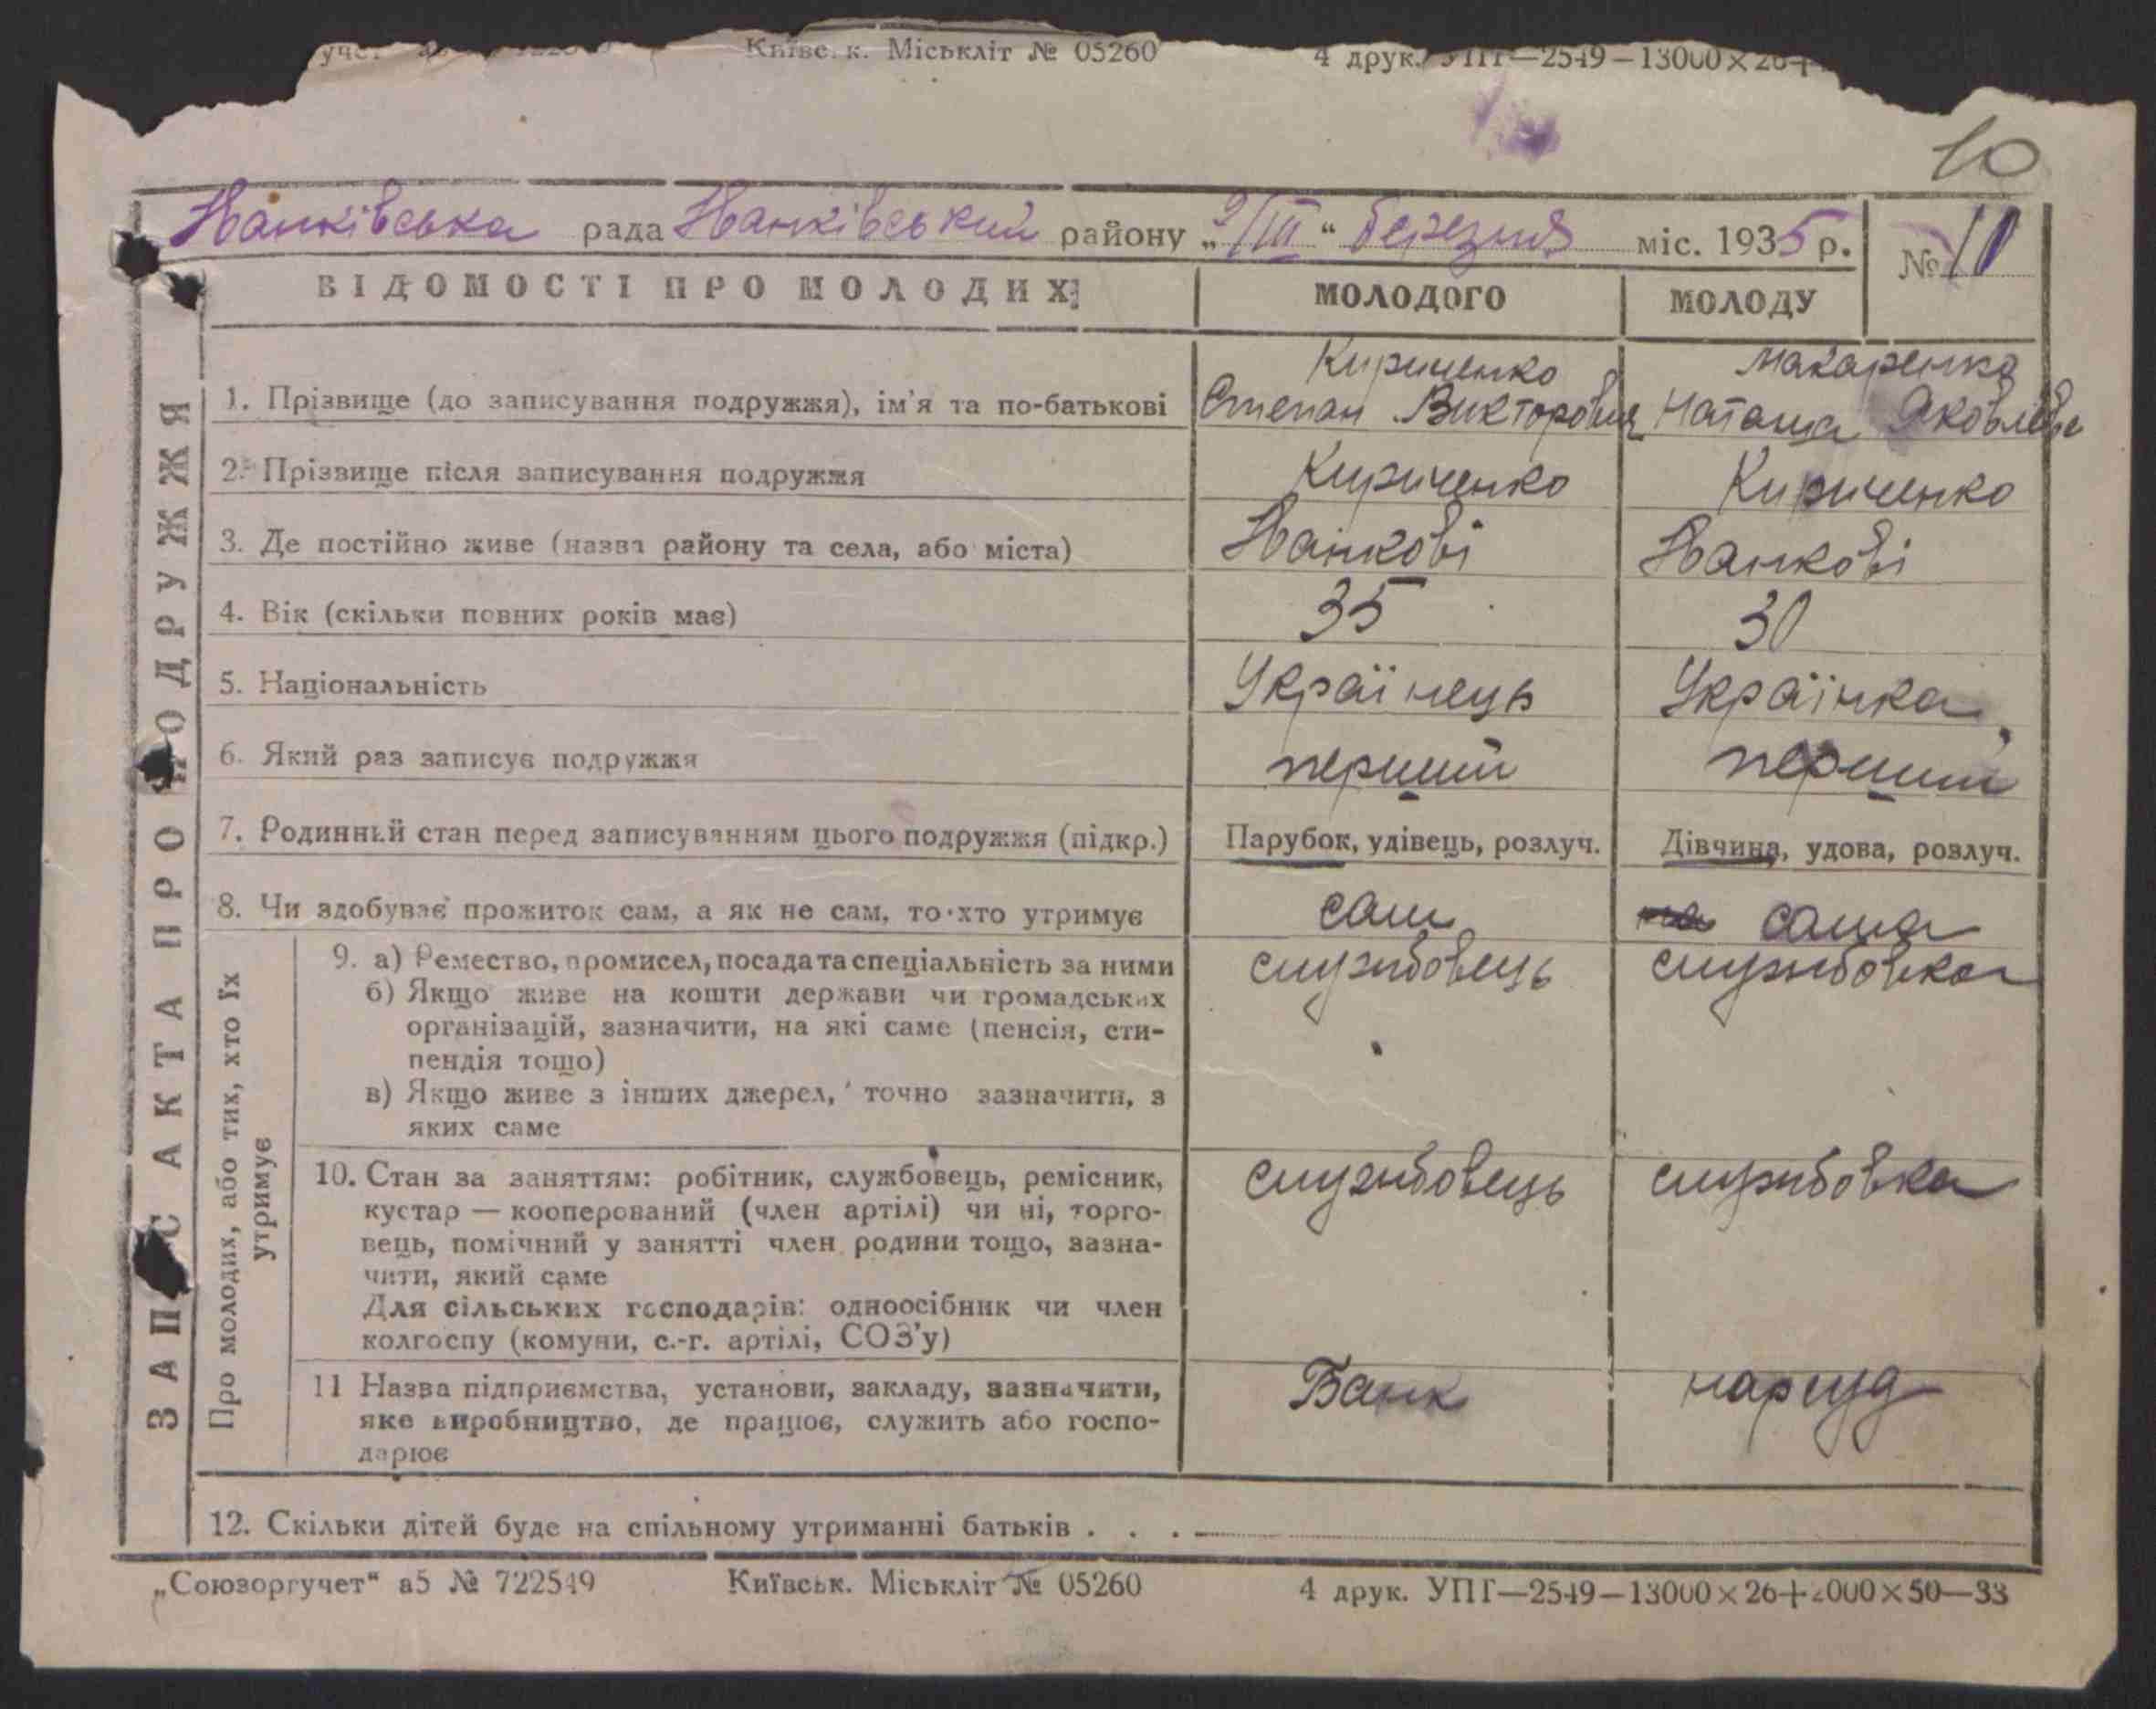 Київс. к. Міськліт № 05260 4 друк. УПГ—2549—13000×26+
10
Іванківська рада Іванківський району „9/III“ березня міс. 1935 р. № 10
ВІДОМОСТІ ПРО МОЛОДИХ МОЛОДОГО МОЛОДУ
ЗАПИС АКТА ПРО ПОДРУЖЖЯ
Кириченко Макаренко
1. Прізвище (до записування подружжя), ім'я та по-батькові Степан Викторович Наташа Яковлевна
2. Прізвище після записування подружжя Кириченко Кириченко
3. Де постійно живе (назва району та села, або міста) Іванкові Іванкові
4. Вік (скільки повних років має) 35 30
5. Національність Українець Українка
6. Який раз записує подружжя перший перший
7. Родинний стан перед записуванням цього подружжя (підкр.) Парубок, удівець, розлуч. Дівчина, удова, розлуч.
8. Чи здобуває прожиток сам, а як не сам, то хто утримує сам сама
Про молодих, або тих, хто їх утримує
9. а) Ремество, промисел, посада та спеціальність за ними службовець службовка
б) Якщо живе на кошти держави чи громадських
організацій, зазначити, на які саме (пенсія, сти-
пендія тощо)
в) Якщо живе з інших джерел, точно зазначити, з
яких саме
10. Стан за заняттям: робітник, службовець, ремісник, службовець службовка
кустар — кооперований (член артілі) чи ні, торго-
вець, помічний у занятті член родини тощо, зазна-
чити, який саме
Для сільських господарів: одноосібник чи член
колгоспу (комуни, с.-г. артілі, СОЗ'у)
11 Назва підприємства, установи, закладу, зазначити, Банк нарсуд
яке виробництво, де працює, служить або госпо-
дарює
12. Скільки дітей буде на спільному утриманні батьків . . .
„Союзоргучет“ а5 № 722549 Київськ. Міськліт № 05260 4 друк. УПГ—2549—13000×26+2000×50—33